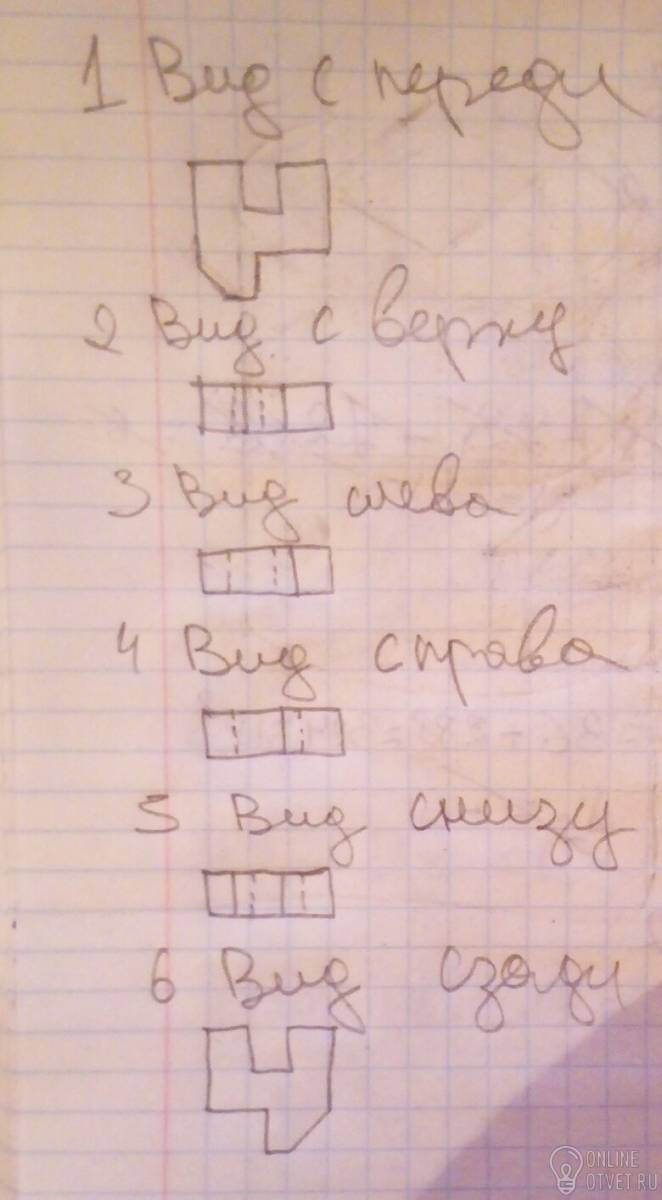 1 Вид с переди
2 Вид с верху
3 Вид слева
4 Вид справа
5 Вид снизу
6 Вид сзади
ONLINE
OTVET.RU